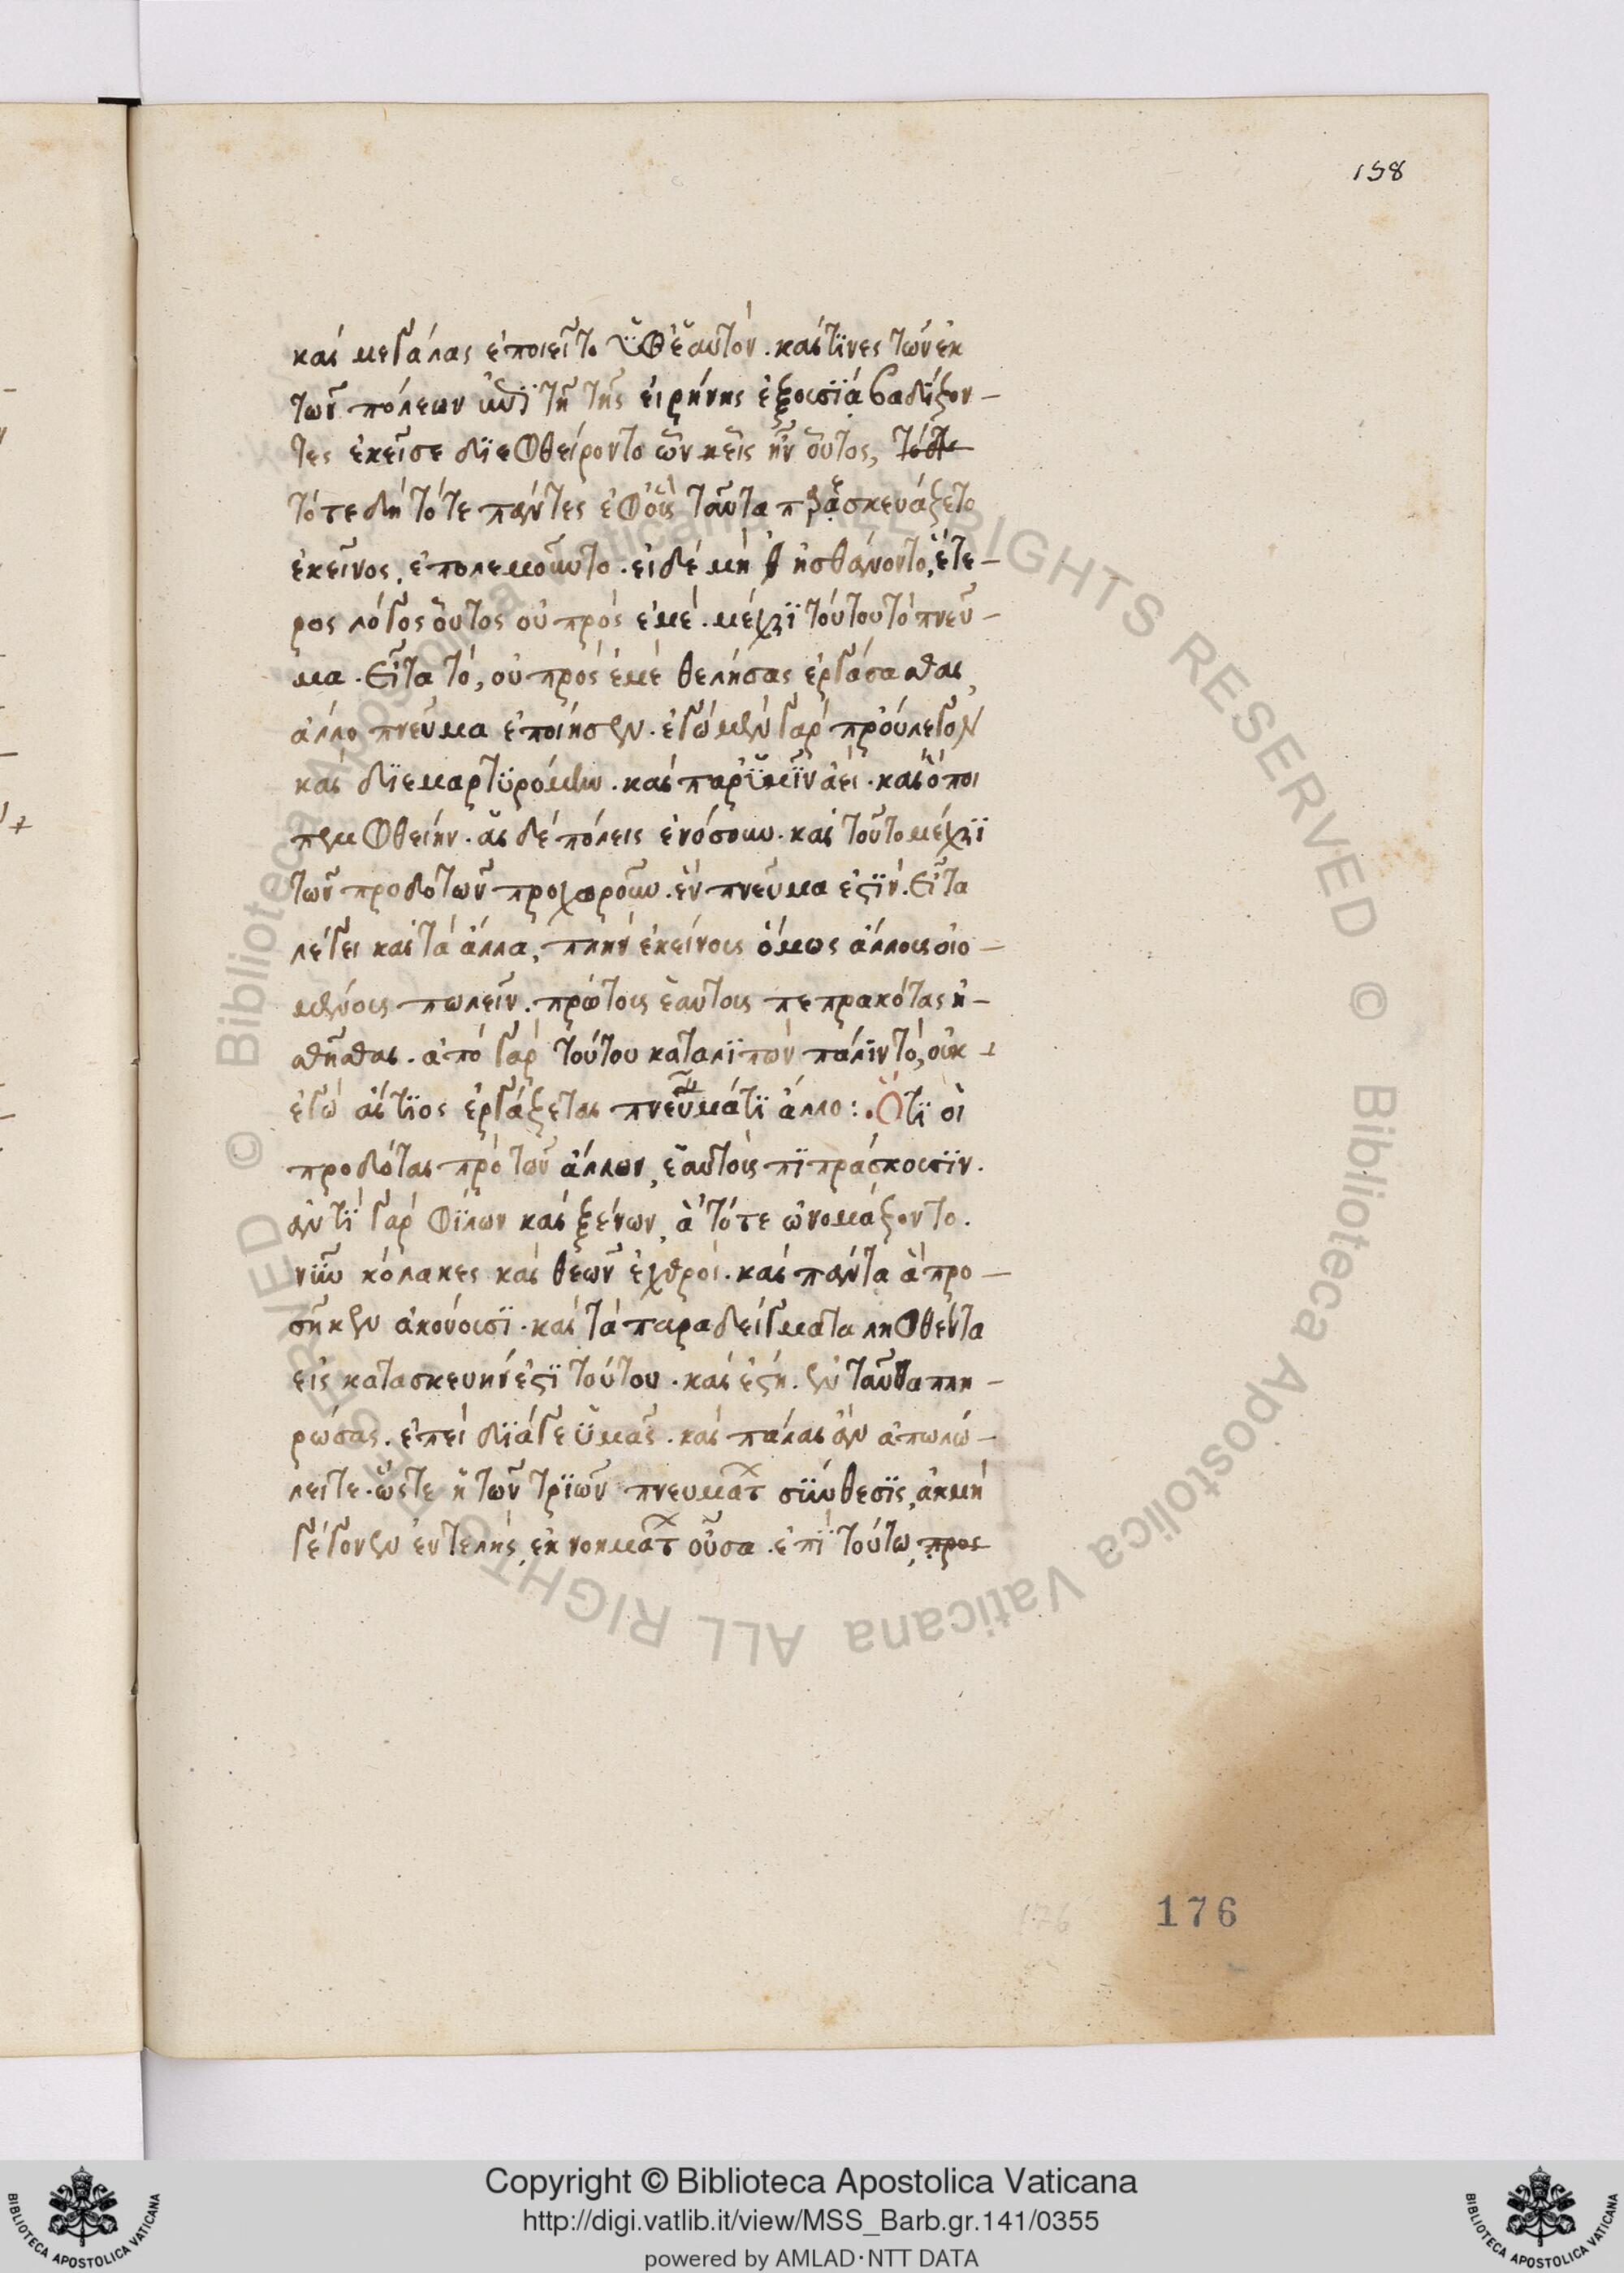 158
καὶ μεγάλας ἐποιεῖτο ὑφ' ἑαυτόν. καί τινες τῶν ἐκ
τῶν πόλεων ἐπὶ τῇ τῆς εἰρήνης ἐξουσίᾳ βαδίζον-
τες ἐκεῖσε διεφθείροντο ὧν εἷς ἦν οὗτος,
τότε δὴ τότε πάντες ἐφ' οὓς ταῦτα παρεσκευάζετο
ἐκεῖνος, ἐπολεμοῦντο. εἰ δὲ μὴ ἠσθάνοντο, ἕτε-
ρος λόγος οὗτος οὐ πρὸς ἐμέ. μέχρι τούτου τὸ πνεῦ-
μα. Εἶτα τό, οὐ πρὸς ἐμὲ θελήσας ἐργάσασθαι,
ἄλλο πνεῦμα ἐποίησεν. ἐγὼ μὲν γὰρ προύλεγον
καὶ διεμαρτυρόμην. καὶ παρ' ὑμῖν ἀεὶ. καὶ ὅποι
πεμφθείην. αἱ δὲ πόλεις ἐνόσουν. καὶ τοῦτο μέχρι
τῶν προδοτῶν προχωροῦν. ἓν πνεῦμα ἐστίν. Εἶτα
λέγει καὶ τὰ ἄλλα, πλὴν ἐκείνοις ὅμως ἄλλους οἰο-
μένοις πωλεῖν. πρώτους ἑαυτοὺς πεπρακότας ᾐ-
σθῆσθαι. ἀπὸ γὰρ τούτου καταλιπὼν πάλιν τό, οὐκ
ἐγὼ αἴτιος ἐργάζεται πνεῦμά τι ἄλλο: Ὅτι οἱ
προδόται πρὸ τῶν ἄλλων, ἑαυτοὺς πιπράσκουσιν.
ἀντὶ γὰρ φίλων καὶ ξένων, ἃ τότε ὠνομάζοντο.
νῦν κόλακες καὶ θεῶν ἐχθροί. καὶ πάντα ἃ προ-
σῆκεν ἀκούουσι. καὶ τὰ παραδείγματα ληφθέντα
εἰς κατασκευὴν ἐστὶ τούτου. καὶ ἔστη. ἐν ταῦθα πλη-
ρώσας. ἐπεὶ διά γε ὑμᾶς. καὶ πάλαι ἂν ἀπωλώ-
λειτε. ὥστε ἡ τῶν τριῶν πνευμάτ σύνθεσις, ἀκμὴ
γέγονεν ἐντελὴς, ἐκ νοημάτ οὖσα. ἐπὶ τούτω,
176
Copyright © Biblioteca Apostolica Vaticana
http://digi.vatlib.it/view/MSS_Barb.gr.141/0355
powered by AMLAD·NTT DATA